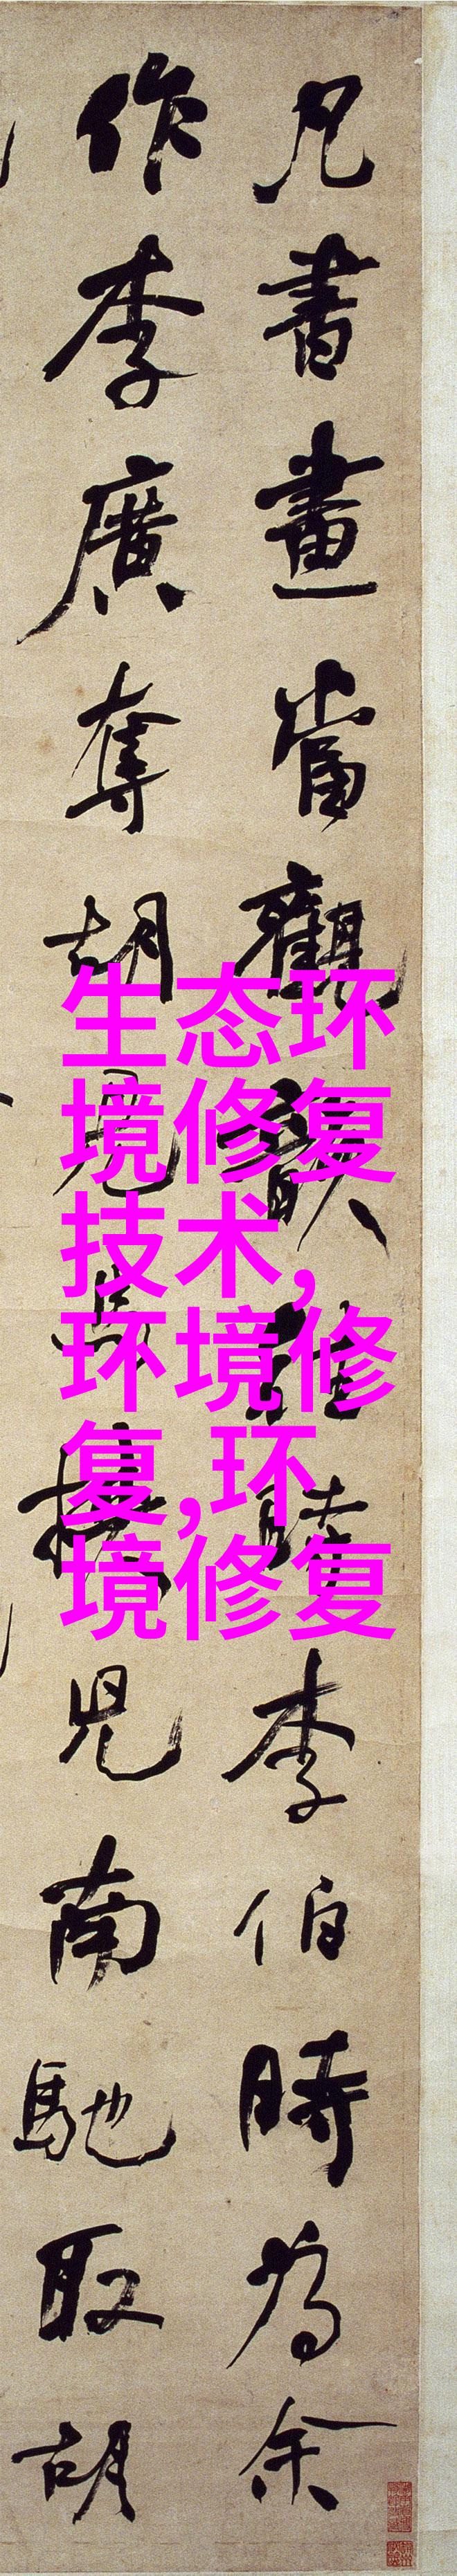 凡書畫當觀韻往時李伯時為余
作李廣奪胡兒馬挾兒南馳取胡
生态环
境修复
技术,
环境修
复,环
境修复